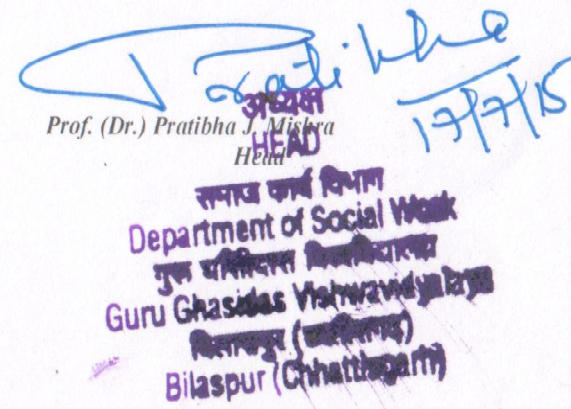 Pratibha
17/7/15
Prof. (Dr.) Pratibha J. Mishra
Head
अध्यक्ष
HEAD
समाज कार्य विभाग
Department of Social Work
गुरू घासीदास विश्वविद्यालय
Guru Ghasidas Vishwavidyalaya
बिलासपुर (छत्तीसगढ़)
Bilaspur (Chhattisgarh)